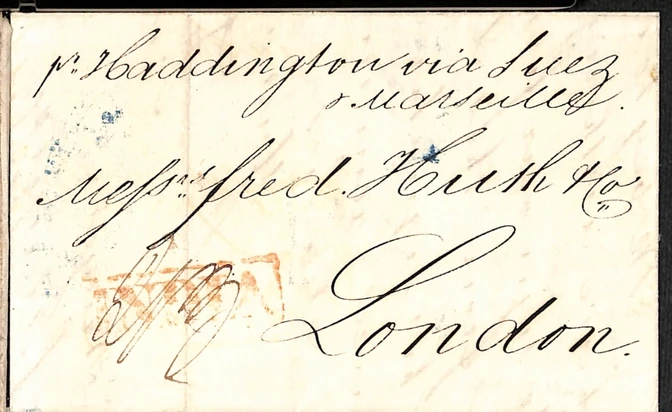 pr. Haddington via Suez
& Marseille.
Messrs. fred. Huth & Co
London.